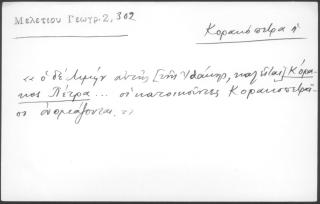 Μελετίου Γεωγρ. 2, 302
Κορακόπετρα ἡ
« ὁ δὲ λιμὴν αὐτῆς [τῆς Ἰθάκης, καλεῖται] Κόρα-
κος Πέτρα... οἱ κατοικοῦντες Κορακοπετραῖ-
οι ὀνομάζονται. »